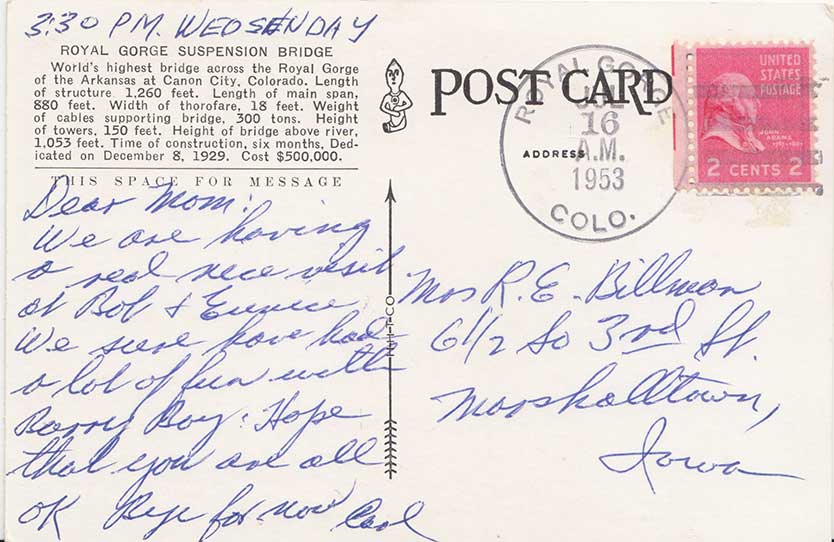 3:30 PM. WEDSENDAY
ROYAL GORGE SUSPENSION BRIDGE
World's highest bridge across the Royal Gorge
of the Arkansas at Canon City, Colorado. Length
of structure 1,260 feet. Length of main span,
880 feet. Width of thorofare, 18 feet. Weight
of cables supporting bridge, 300 tons. Height
of towers, 150 feet. Height of bridge above river,
1,053 feet. Time of construction, six months, Ded-
icated on December 8, 1929. Cost $500,000.
THIS SPACE FOR MESSAGE
Dear Mom:
We are having
a real nice visit
at Bob & Eunice
We sure have had
a lot of fun with
Barry Boy. Hope
that you are all
OK Bye for now Carl
POST CARD
ADDRESS
ROYAL GORGE
JUL
16
A.M.
1953
COLO.
UNITED
STATES
POSTAGE
JOHN
ADAMS
1797-1801
2 CENTS 2
Mrs R. E. Billman
61½ So 3rd St.
Marshalltown,
Iowa